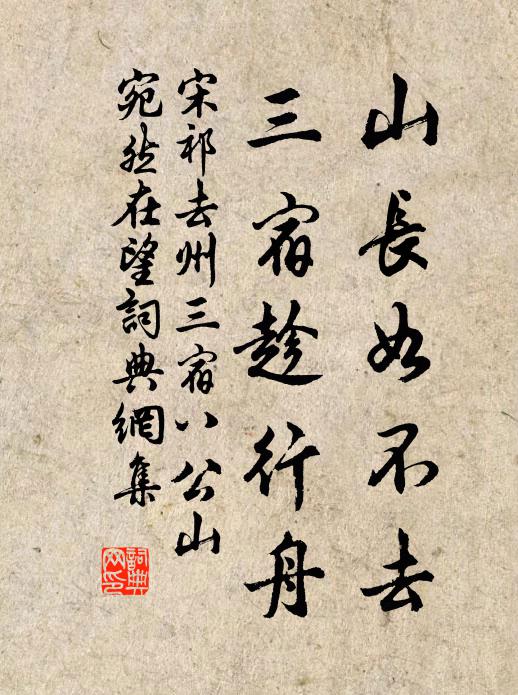 山長如不去
三宿趁行舟
宋祁去州三宿八公山
宛然在望詞典網集
詞典网印